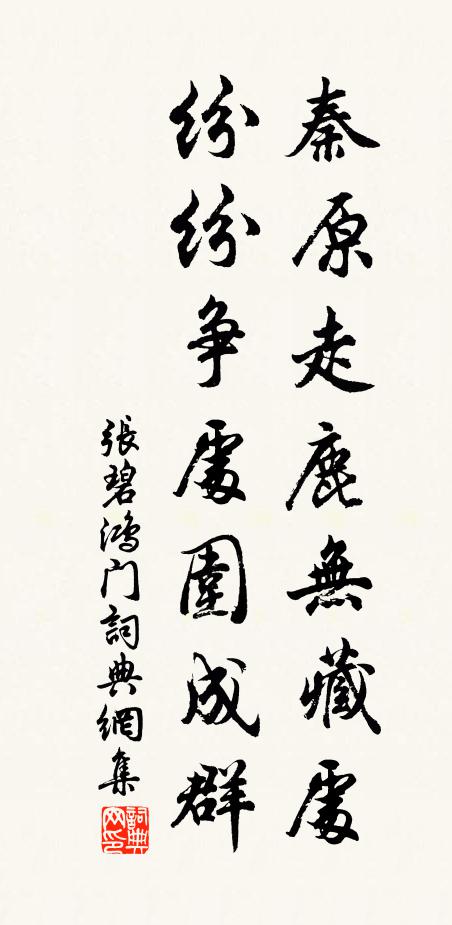 秦原走鹿無藏處
紛紛争處圍成群
張碧鴻门詞典網集
詞典网印